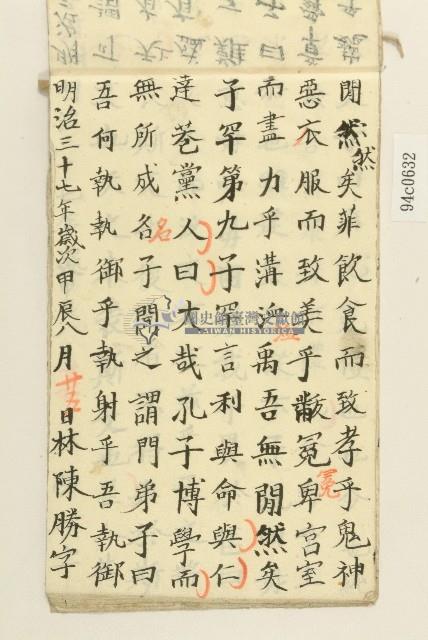 閒然矣菲飲食而致孝乎鬼神
然
惡衣服而致美乎黻冕卑宮室
冕
而盡力乎溝洫禹吾無閒然矣
洫
子罕第九子罕言利與命與仁
達巷黨人曰大哉孔子博學而
無所成名子聞之謂門弟子曰
名
吾何執執御乎執射乎吾執御
明治三十七年歲次甲辰八月廿五日林陳勝字
國史館臺灣文獻館
TAIWAN HISTORICA
94c0632